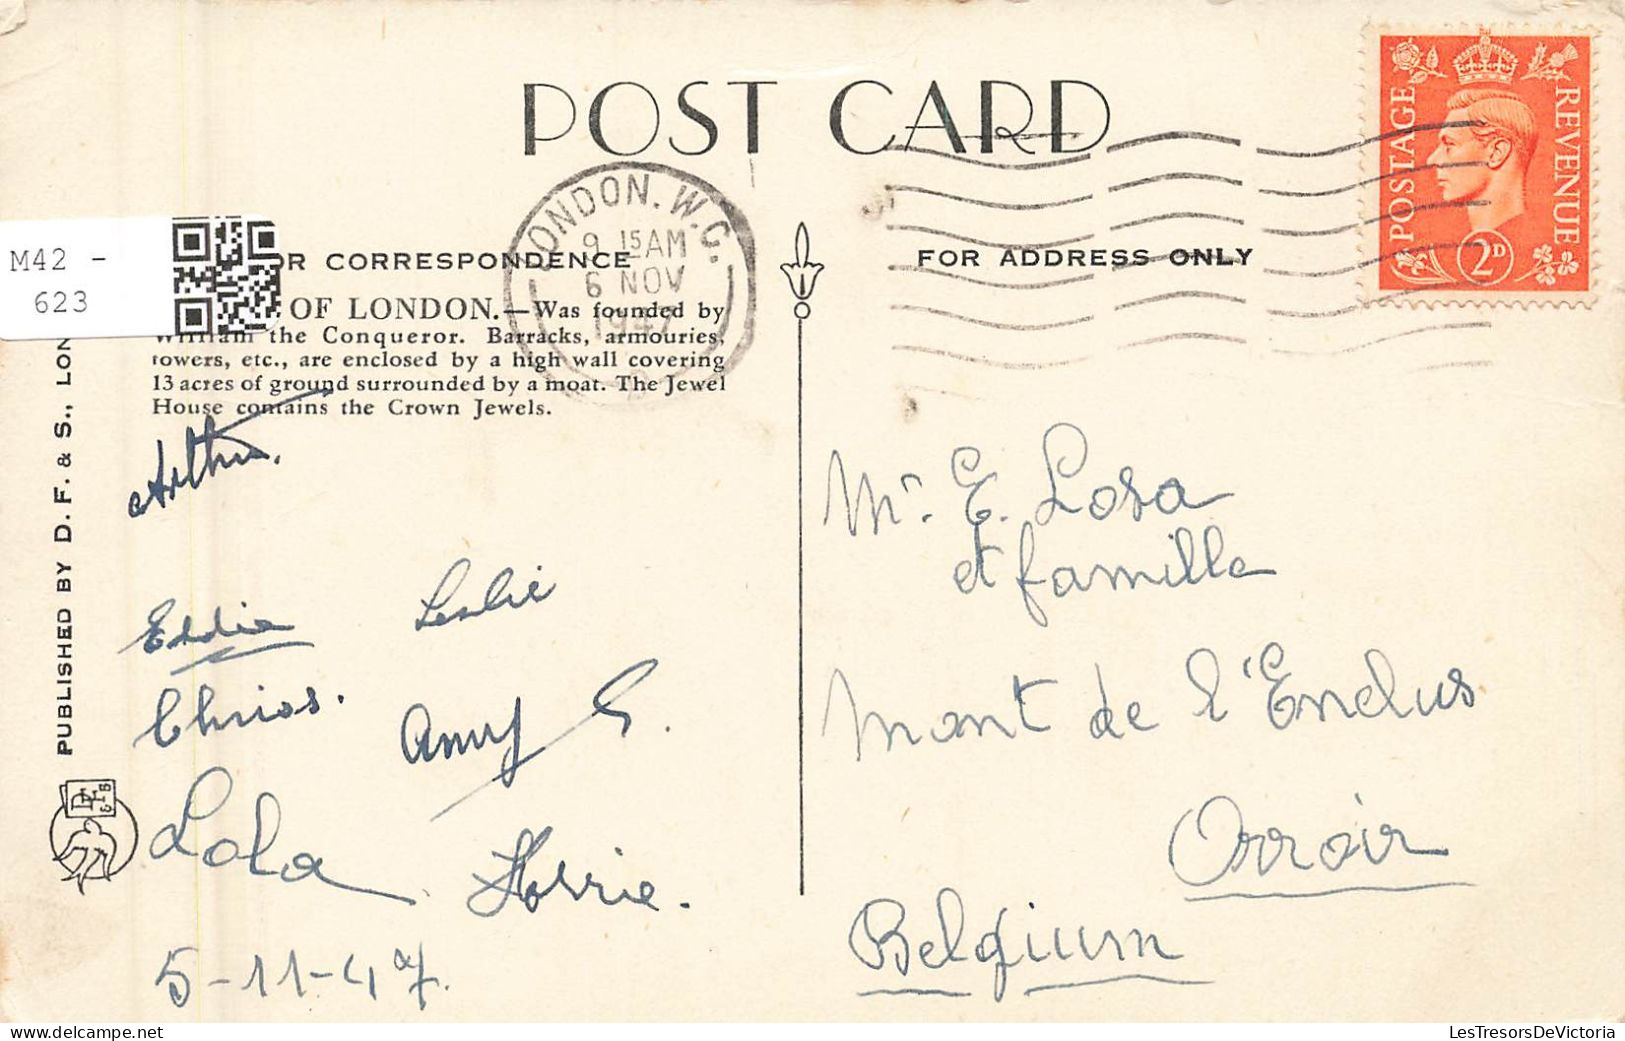 POST CARD
POSTAGE REVENUE
2D
LONDON. W.C.
9 15 AM
6 NOV
1947
M42 -
623
OR CORRESPONDENCE
FOR ADDRESS ONLY
OF LONDON.—Was founded by
William the Conqueror. Barracks, armouries,
towers, etc., are enclosed by a high wall covering
13 acres of ground surrounded by a moat. The Jewel
House contains the Crown Jewels.
PUBLISHED BY D. F. & S., LON
Arthur.
Eddie Leslie
Chris.
Amy G.
Lola
Horrie.
5-11-47.
Mr. E. Losa
et famille
Mont de l'Enclus
Orroir
Belgium
LesTresorsDeVictoria